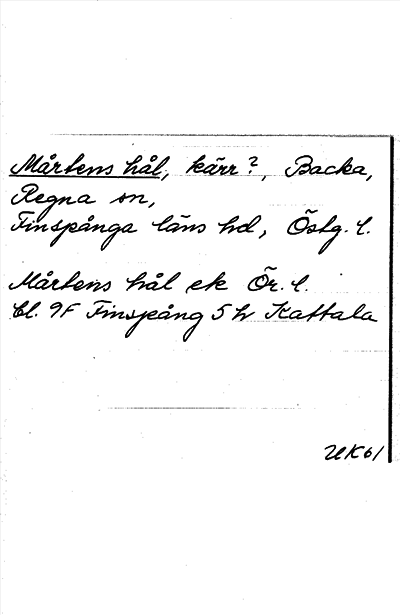 Mårtens hål, kärr?, Backa,
Regna sn,
Finspånga läns hd, Östg. l.
Mårtens hål ek Ör. l.
bl. 9F Finspång 5 h Kattala
UK61